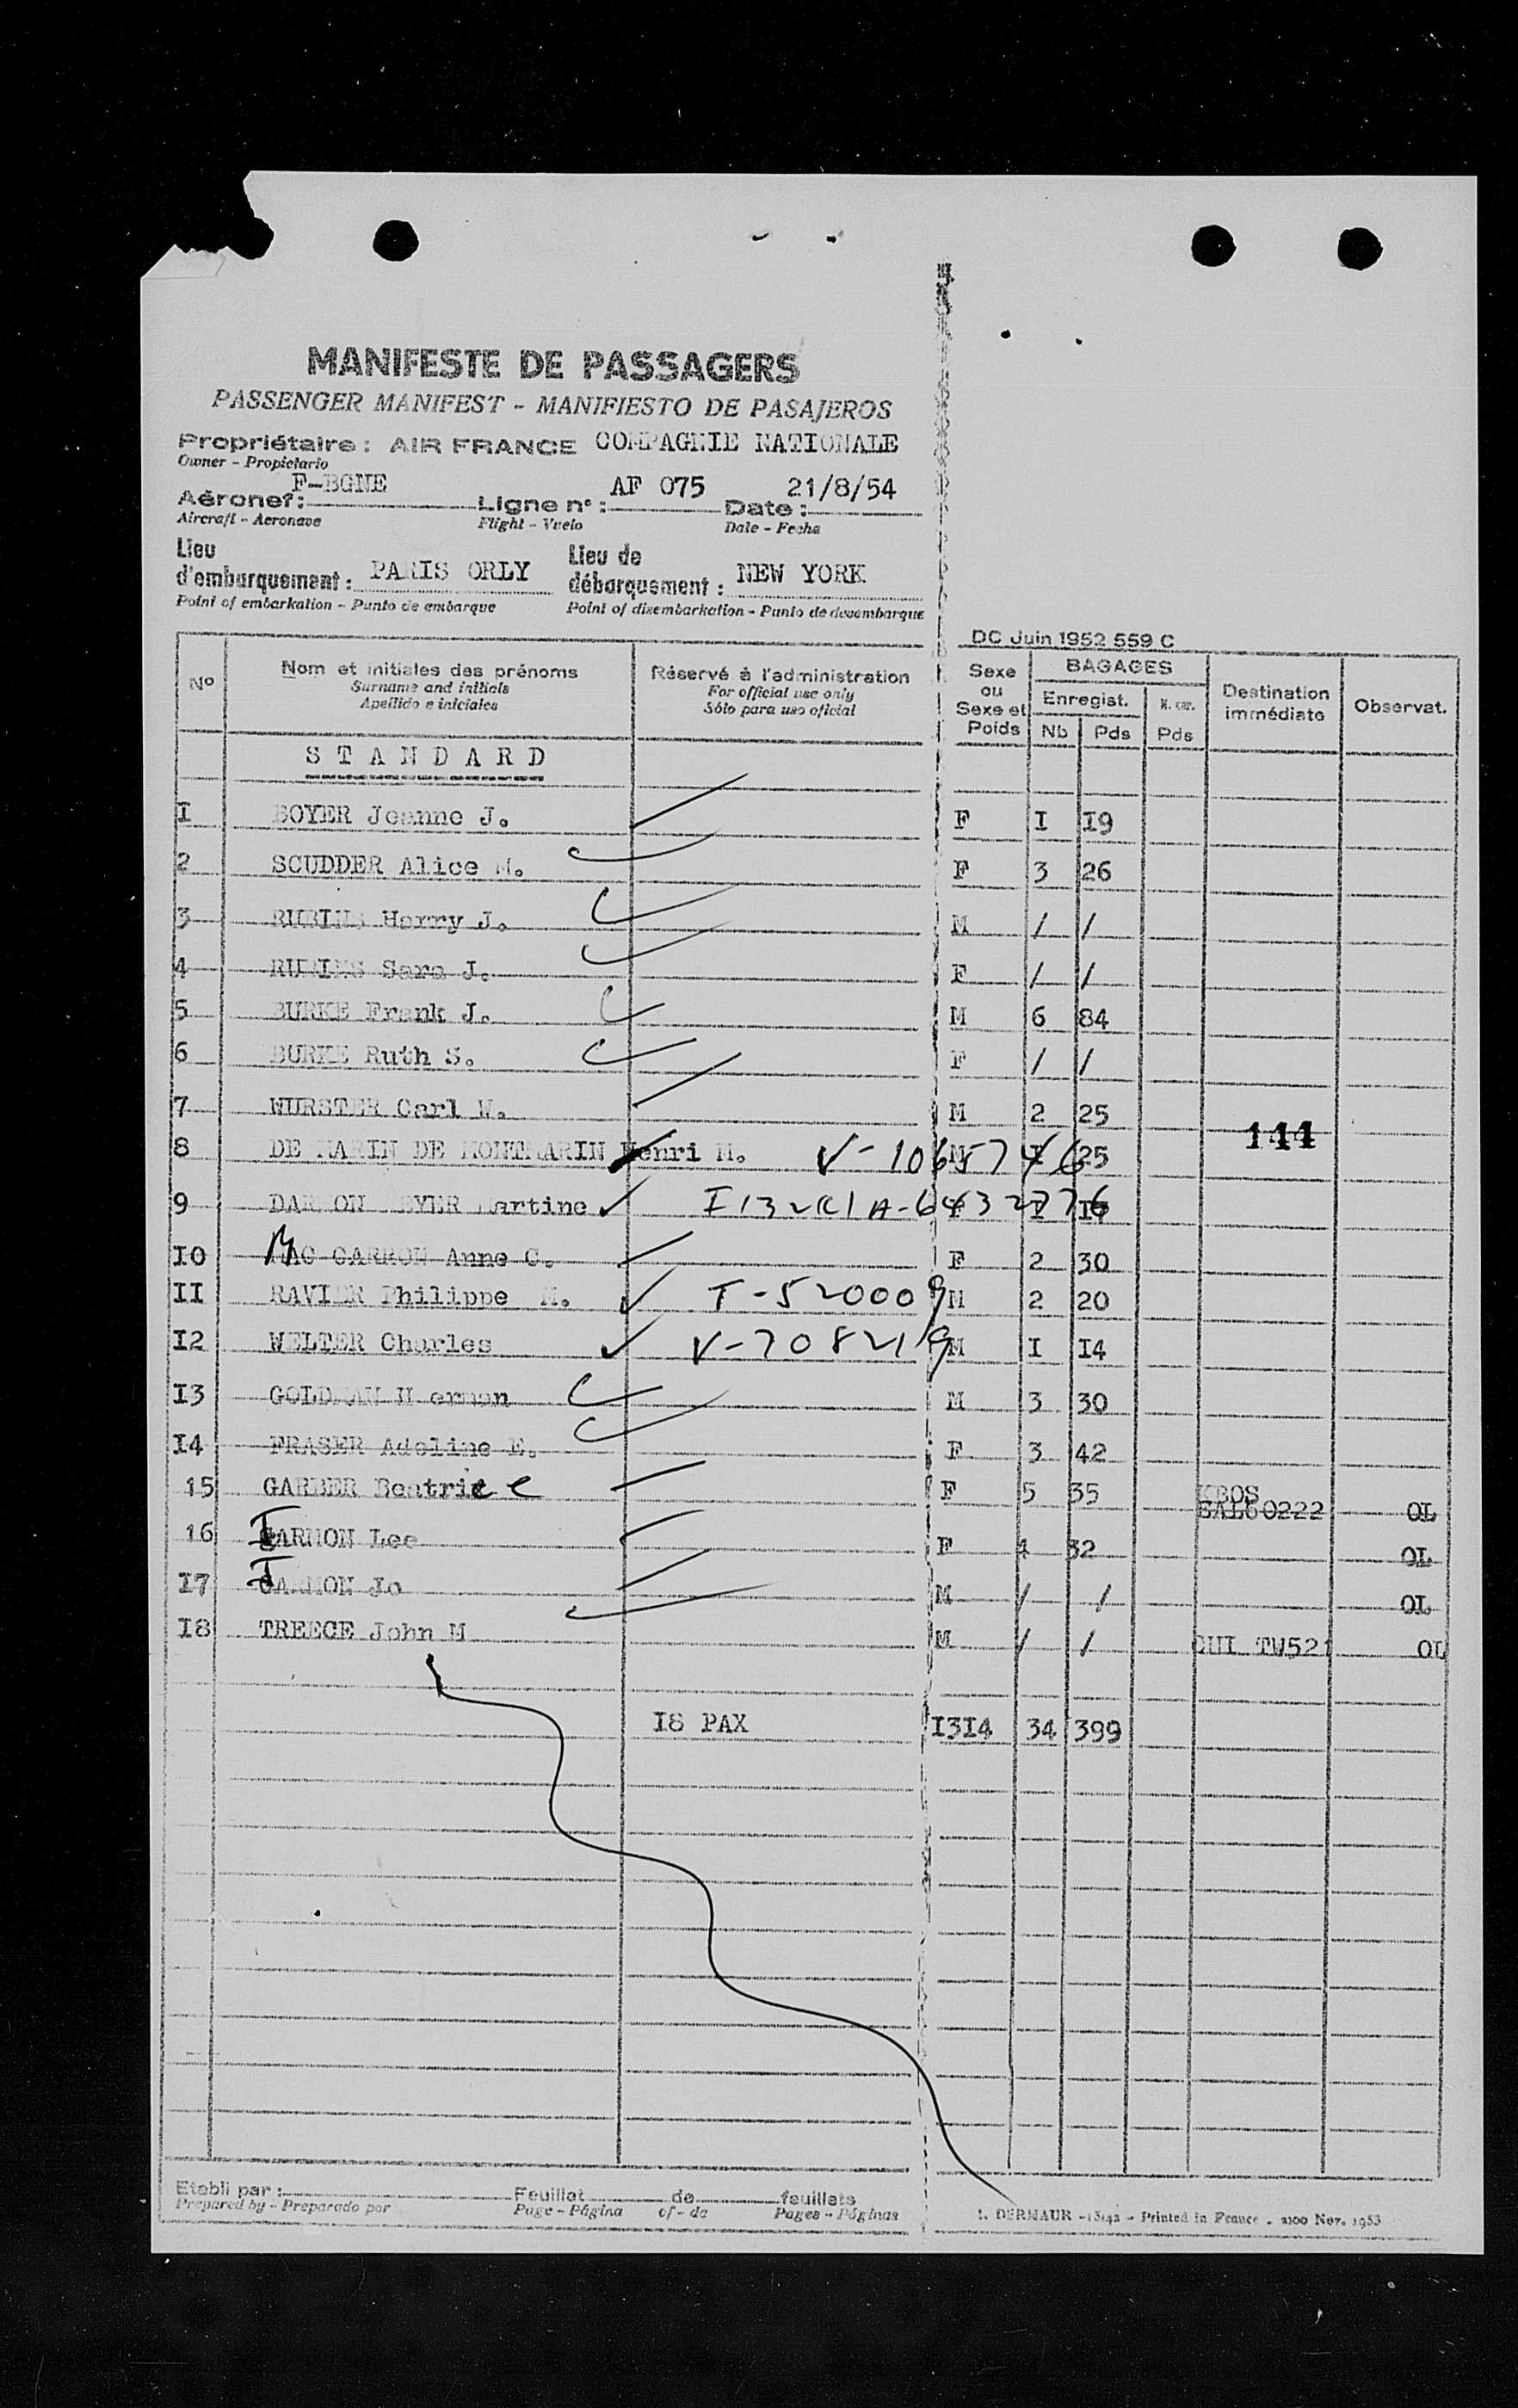 MANIFESTE DE PASSAGERS
PASSENGER MANIFEST - MANIFIESTO DE PASAJEROS
Propriétaire : AIR FRANCE COMPAGNIE NATIONALE
Owner - Propietario
F-BGNE AF 075 21/8/54
Aéronef : Ligne n° : Date :
Aircraft - Aeronave Flight - Vuelo Date - Fecha
Lieu d'embarquement : PARIS ORLY Lieu de débarquement : NEW YORK
Point of embarkation - Punto de embarque Point of disembarkation - Punto de desembarque
DC Juin 1952 559 C
N° Nom et initiales des prénoms Réservé à l'administration Sexe ou Sexe et Poids BAGAGES Destination immédiate Observat.
Surname and initials For official use only Enregist. N. enr.
Apellido e iniciales Sólo para uso oficial Nb Pds Pds
STANDARD
I BOYER Jeanne J. F I I9
2 SCUDDER Alice M. F 3 26
3 RUBINS Harry J. M / /
4 RUBINS Sara J. F / /
5 BURKE Frank J. M 6 84
6 BURKE Ruth S. F / /
7 WURSTER Carl W. M 2 25
144
8 DE MARIN DE MONTMARIN Henri M. V-1065746 25
9 Martine I132R1A-
I0 MAC CARRON Anne C. F 2 30
II RAVIER Philippe M. T-520009 M 2 20
I2 WELTER Charles V-708219 M I I4
I3 GOLDMAN Herman M 3 30
I4 FRASER Adeline E. F 3 42
15 GARBER Beatrice F 5 35 KBOS EAL60222 OL
16 IARMON Lee F 4 32 OL
I7 IARMON Jo M / / OL
I8 TREECE John M M / / CHI TW521 OL
I8 PAX I3I4 34 399
Etabli par : Feuillet de feuillets
Prepared by - Preparado por Page - Página of - de Pages - Páginas
DERMAUR - Printed in France - Nov. 1953